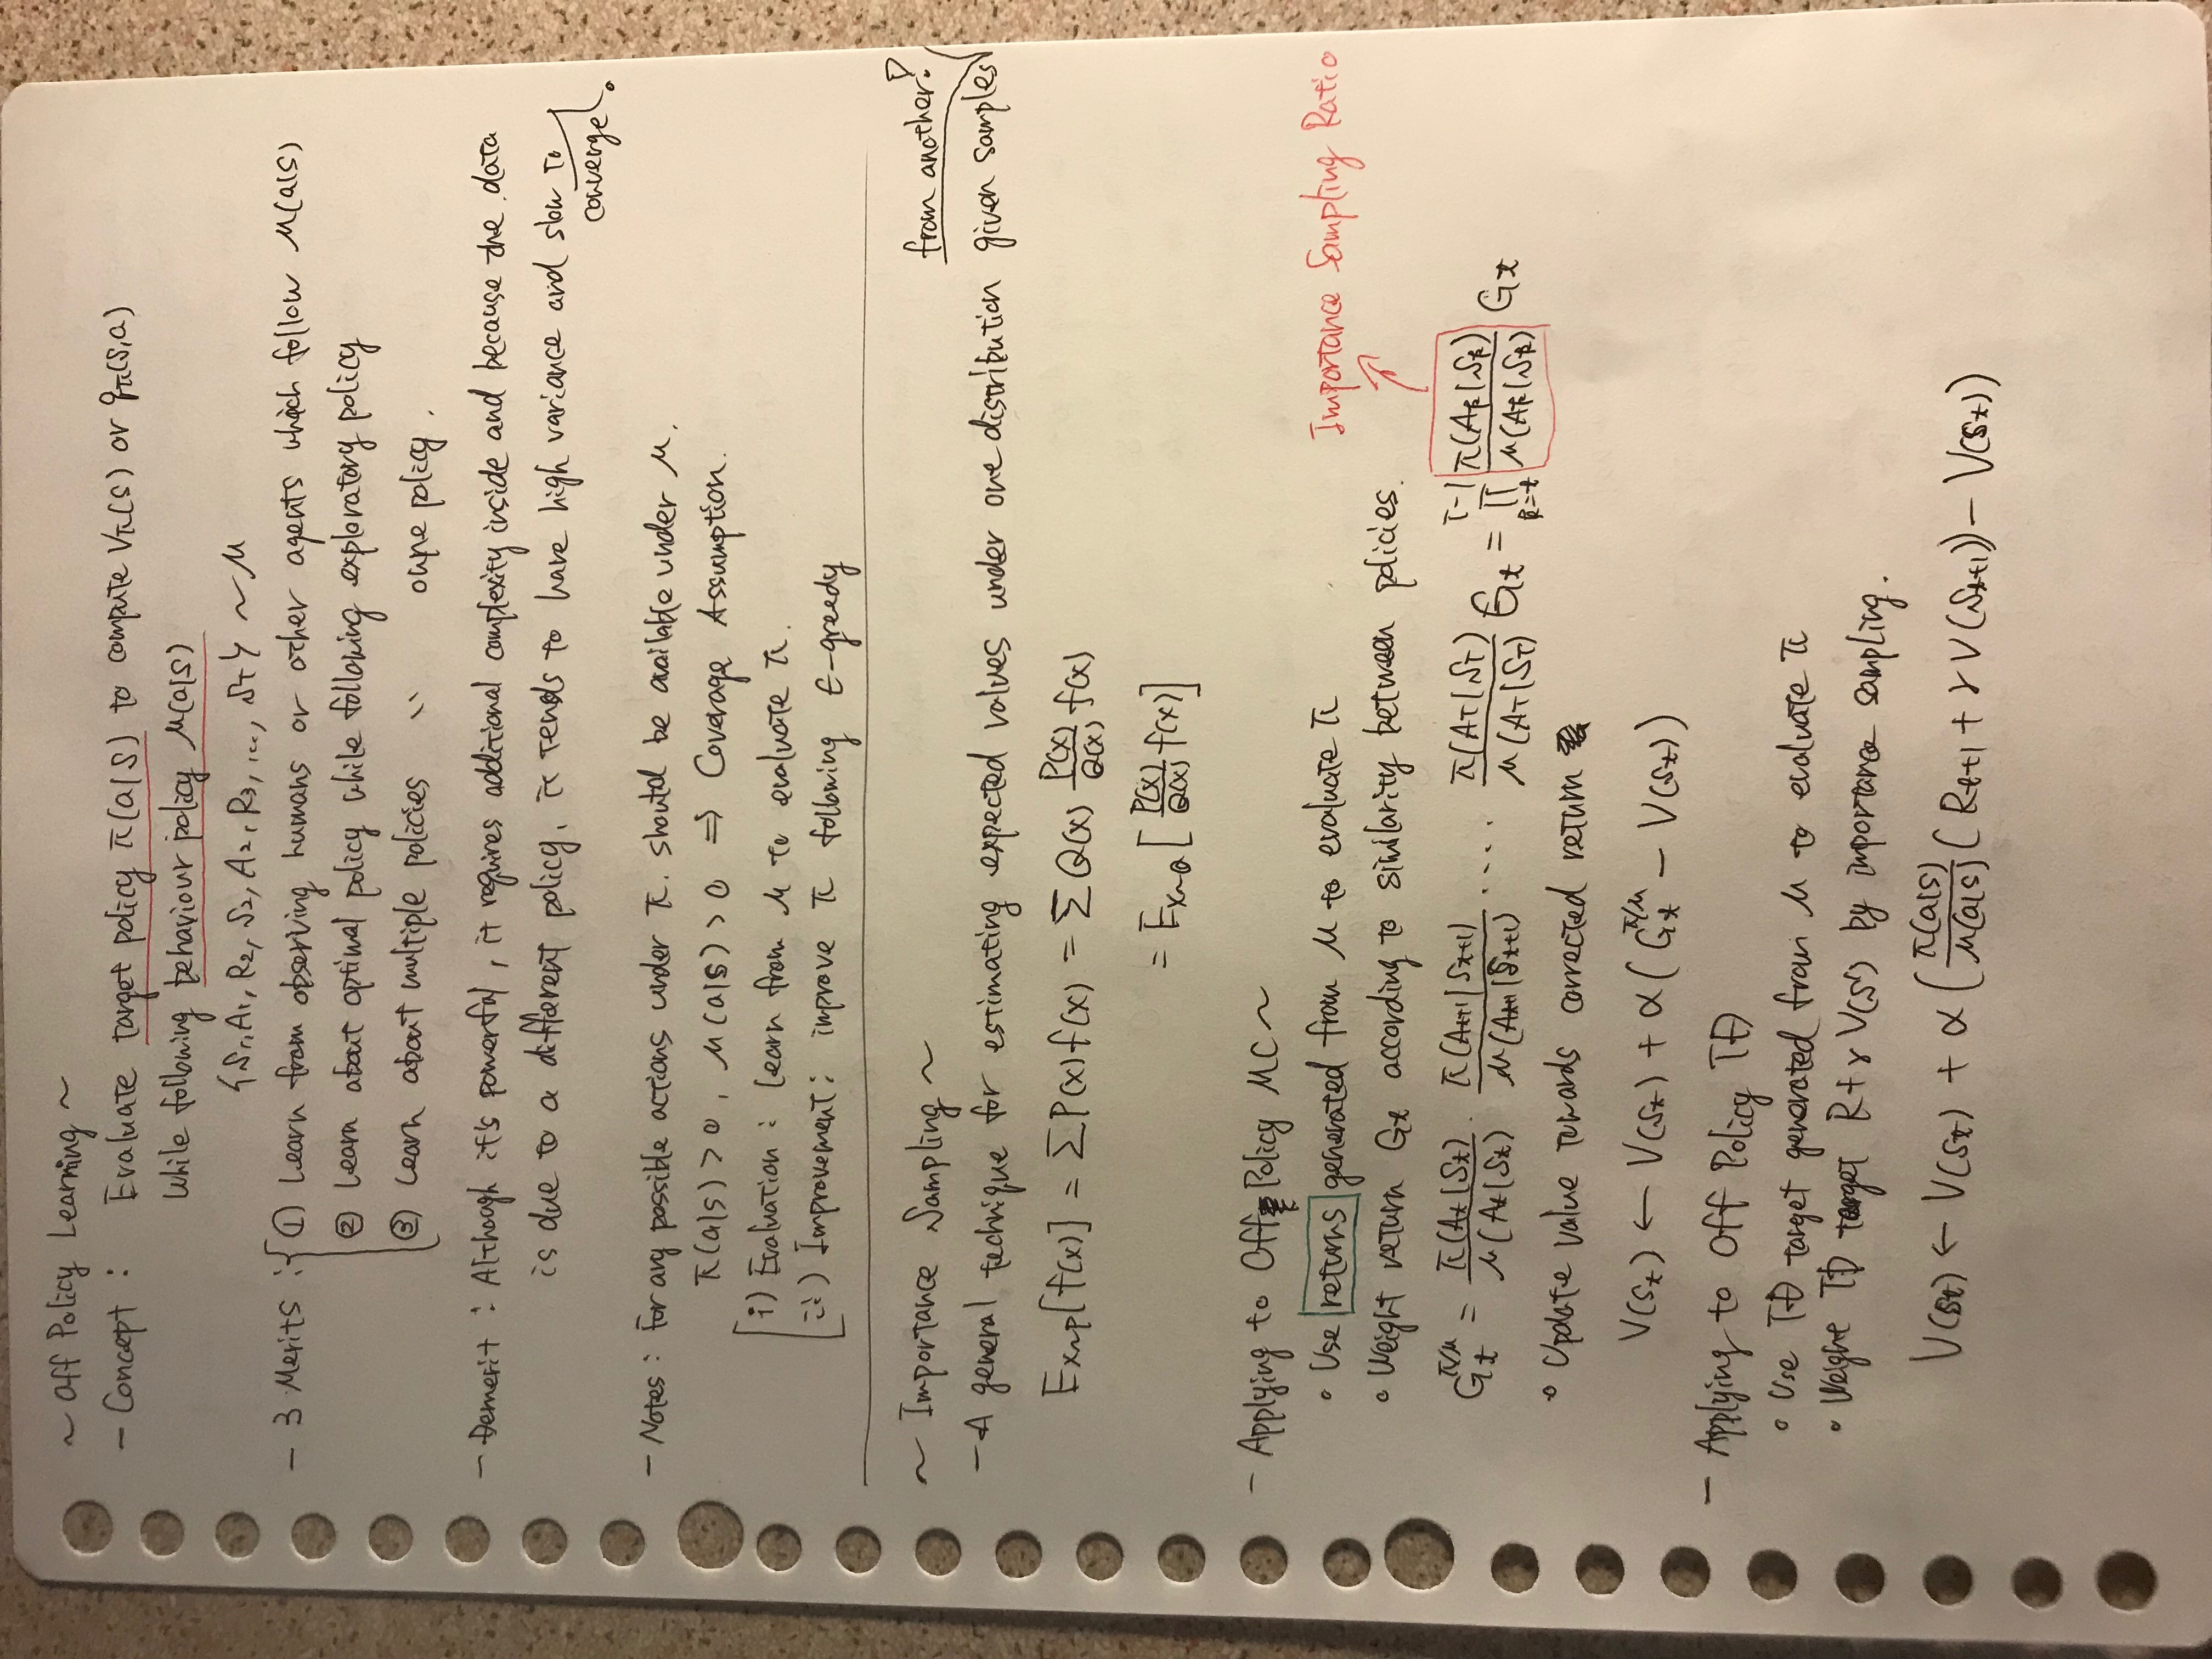 ~ Off Policy Learning ~
- Concept : Evaluate target policy π(a|s) to compute Vπ(s) or qπ(s,a)
While following behaviour policy μ(a|s)
{S₁, A₁, R₂, S₂, A₂, R₃, ..., S_T} ~ μ
- 3 Merits : { ① Learn from observing humans or other agents which follow μ(a|s)
② Learn about optimal policy while following exploratory policy
③ Learn about multiple policies 〃 policy.
- Demerit : Although it's powerful, it requires additional complexity inside and because the data
is due to a different policy, it tends to have high variance and slow to
converge.
- Notes : For any possible actions under π. should be available under μ.
π(a|s) > 0, μ(a|s) > 0 ⇒ Coverage Assumption.
i) Evaluation : learn from μ to evaluate π.
ii) Improvement : improve π following ε-greedy
~ Importance Sampling ~
- A general technique for estimating expected values under one distribution given samples
from another!
E_{x~p}[f(x)] = Σ P(x) f(x) = Σ Q(x) P(x)/Q(x) f(x)
= E_{x~Q} [ P(x)/Q(x) f(x) ]
- Applying to Off Policy MC ~
• Use returns generated from μ to evaluate π
Importance Sampling Ratio
• Weight return G_t according to similarity between policies.
G_t^{π/μ} = π(A_t|S_t)/μ(A_t|S_t) · π(A_{t+1}|S_{t+1})/μ(A_{t+1}|S_{t+1}) .... π(A_T|S_T)/μ(A_T|S_T) G_t = ∏_{k=t}^{T-1} π(A_k|S_k)/μ(A_k|S_k) G_t
• Update value towards corrected return
V(S_t) ← V(S_t) + α( G_t^{π/μ} − V(S_t))
- Applying to Off Policy TD
• Use TD target generated from μ to evaluate π
• Weight TD target R+γV(S') by importance sampling.
V(S_t) ← V(S_t) + α( π(a|s)/μ(a|s) ( R_{t+1} + γV(S_{t+1})) − V(S_t))